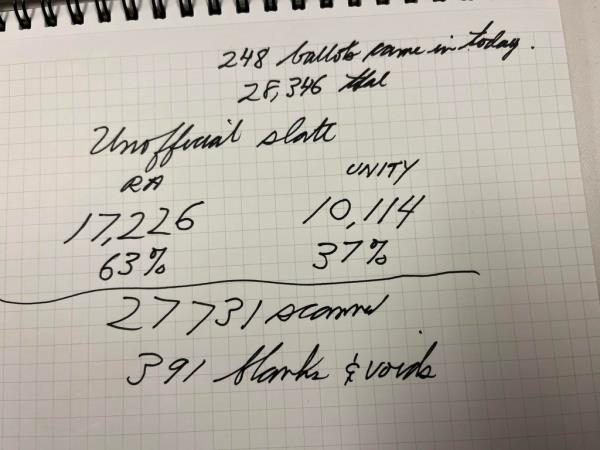 248 ballots came in today.
28,346 total
Unofficial slate
RA UNITY
17,226 10,114
63% 37%
27731 scanned
391 blanks & voids